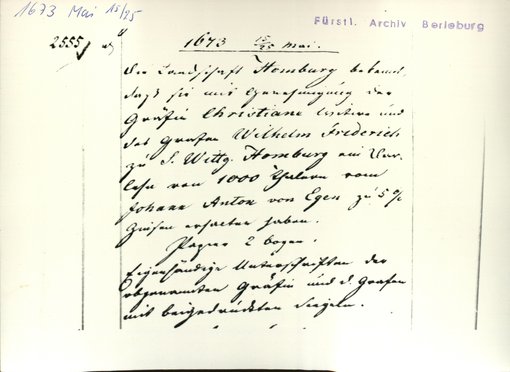 1673 Mai 15/25
Fürstl. Archiv Berleburg
2555
1673 15/25 Mai.
Die Landschaft Homburg bekennt,
daß sie mit Genehmigung der
Gräfin Christiane Wittwe und
des Grafen Wilhelm Friederich
zu S. Wittg. Homburg ein Dar-
lehn von 1000 Thalern vom
Johann Anton von Egen zu 5 %
Zinsen erhalten haben.
Papier 2 bogen.
Eigenhändige Unterschriften der
obgenannten Gräfin und d. Grafen
mit beigedruckten Siegeln.